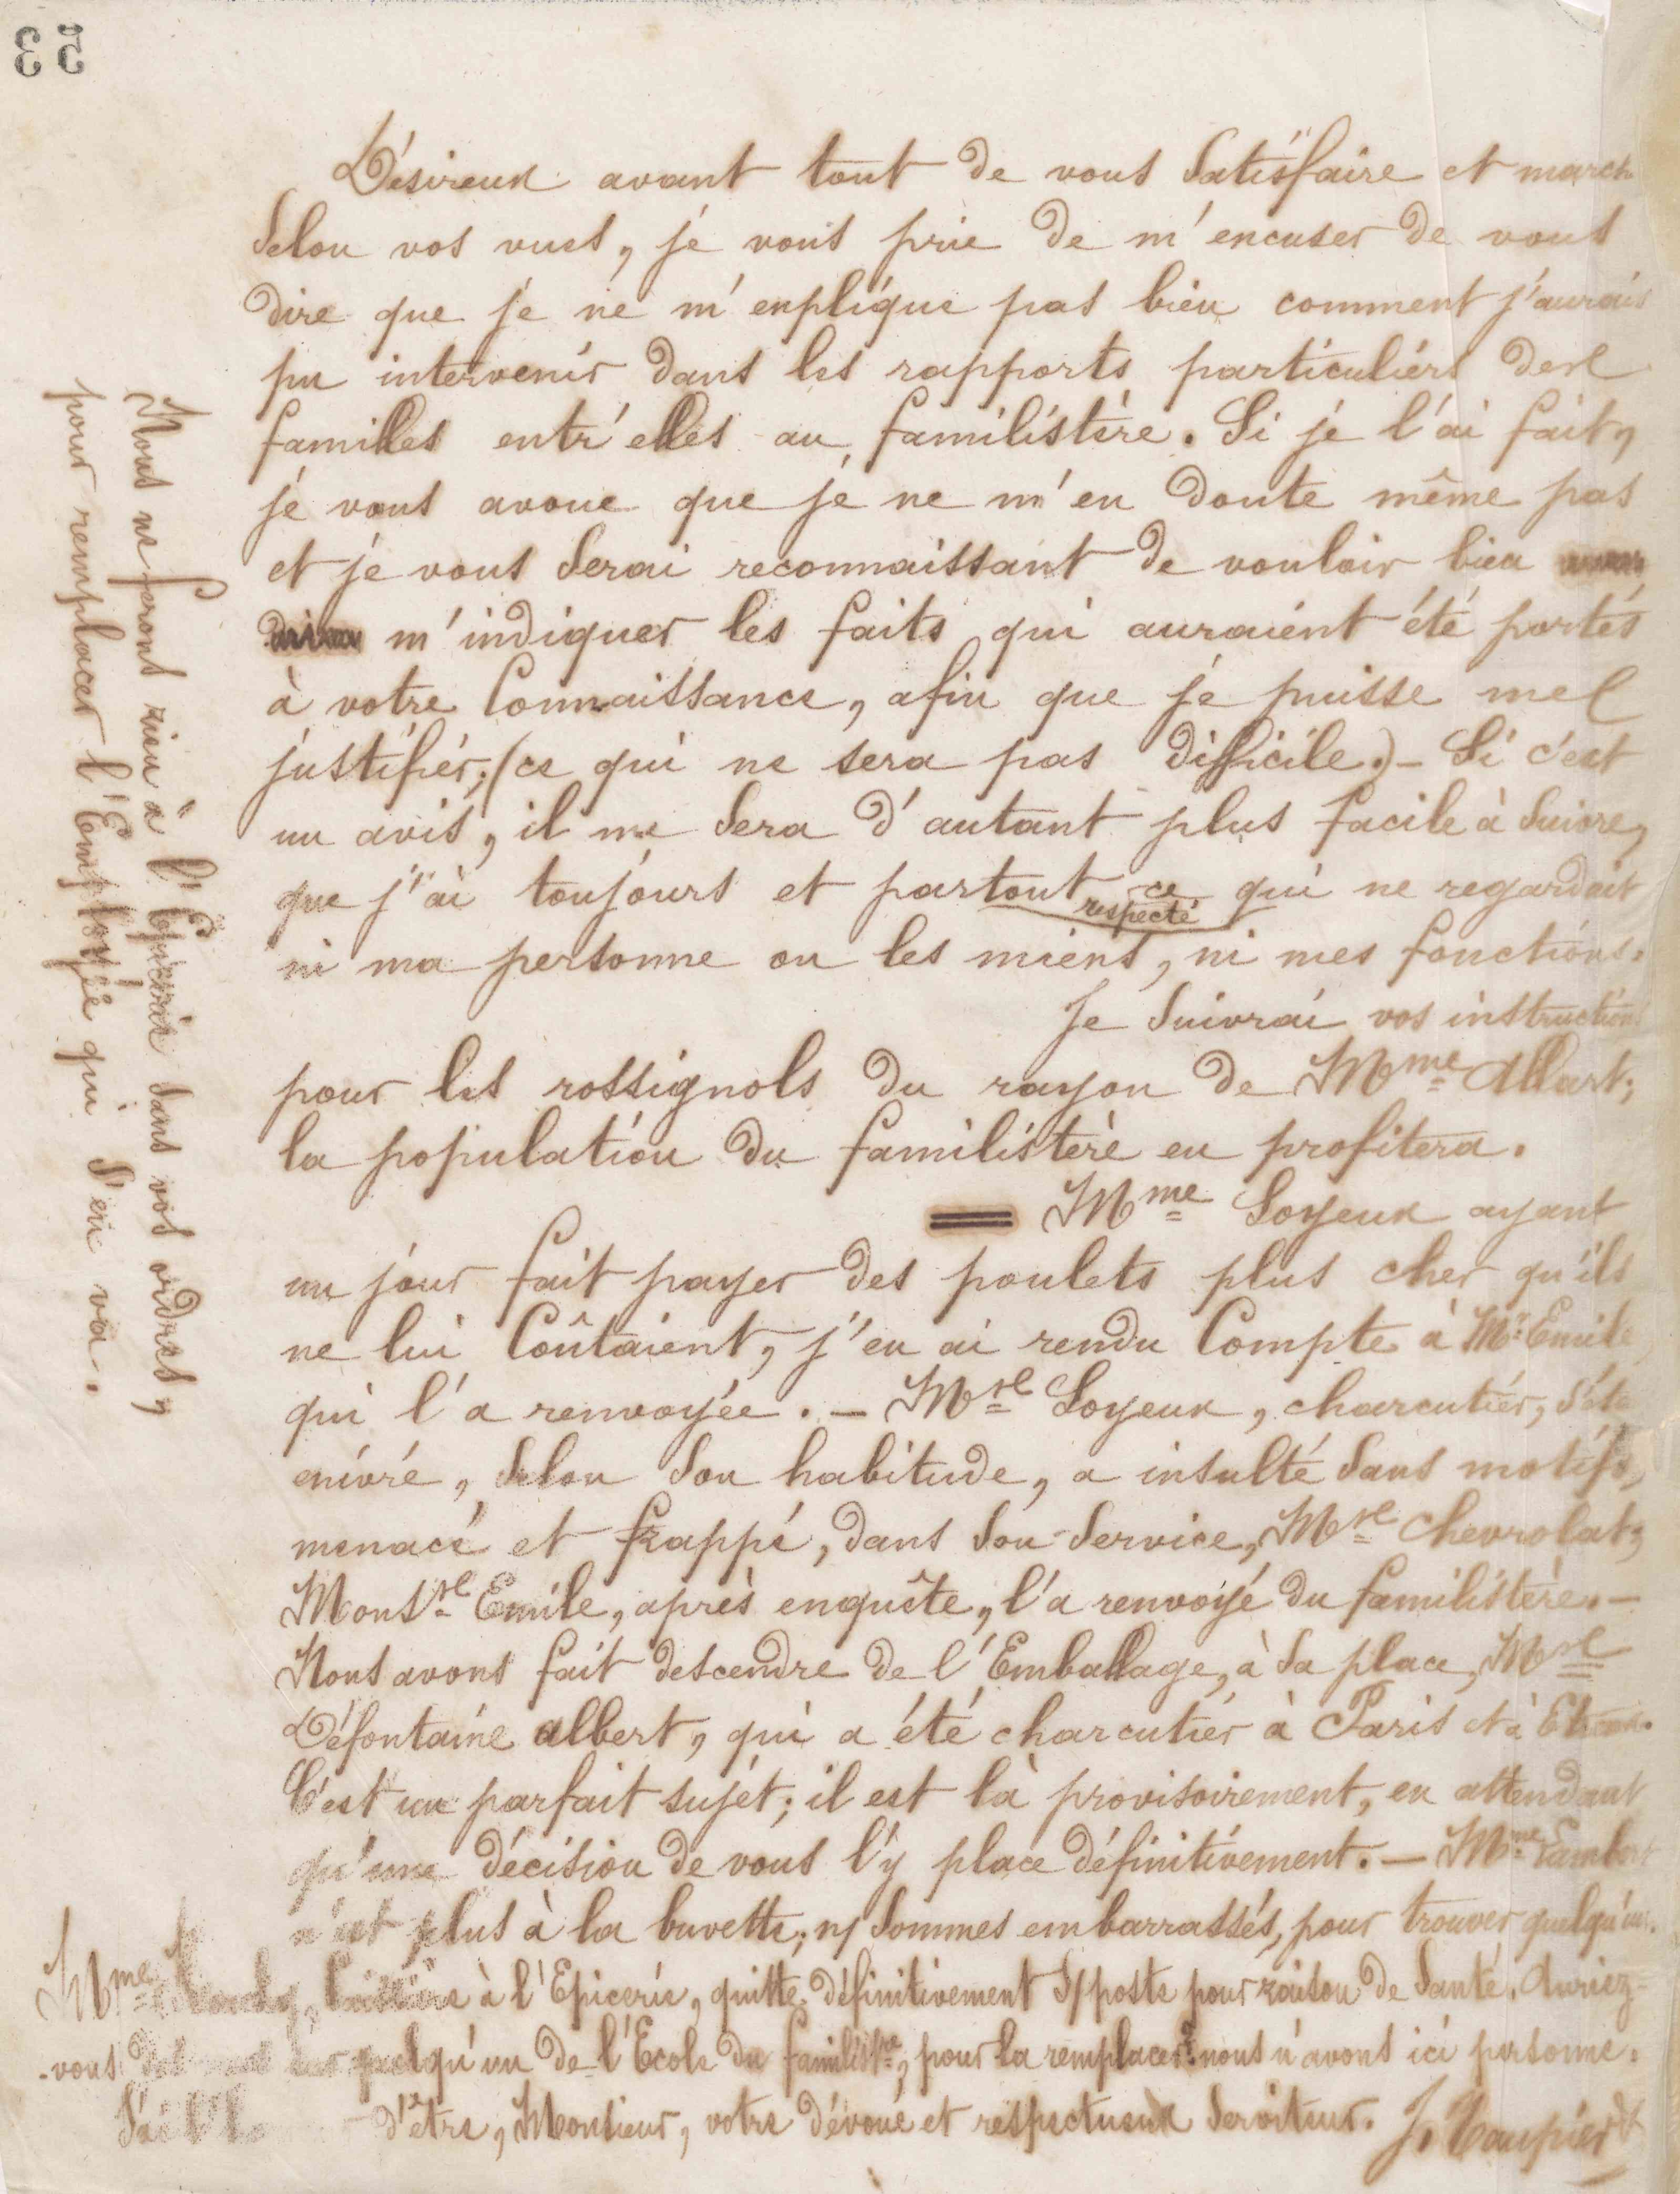 53
Désireux avant tout de vous satisfaire et march
selon vos vues, je vous prie de m'excuser de vous
dire que je ne m'explique pas bien comment j'aurais
pu intervenir dans les rapports particuliers des
familles entr'elles au familistère. Si je l'ai fait,
je vous avoue que je ne m'en doute même pas
et je vous serai reconnaissant de vouloir bien
m'indiquer les faits qui auraient été portés
à votre Connaissance, afin que je puisse me
justifier; (ce qui ne sera pas difficile.) - Si c'est
un avis, il me sera d'autant plus facile à suivre,
que j'ai toujours et partout respecté ce qui ne regardait
ni ma personne ou les miens, ni mes fonctions.
Je suivrai vos instructions
pour les rossignols du rayon de Mme Allart;
la population du familistère en profitera.
Mme Soyeux ayant
un jour fait payer des poulets plus cher qu'ils
ne lui Coûtaient, j'en ai rendu Compte à Mr Emile
qui l'a renvoyée. - Mr Soyeux, charcutier, s'éta
enivré, selon son habitude, a insulté sans motifs,
menacé et frappé, dans son service, Mr Chevrolat,
Monsr Emile, après enquête, l'a renvoyé du familistère. -
Nous avons fait descendre de l'Emballage, à sa place, Mr
Défontaine albert, qui a été charcutier à Paris et à
C'est un parfait sujet; il est là provisoirement, en attendant
qu'une décision de vous l'y place définitivement. - Mme Lambert
n'est plus à la buvette; n/ sommes embarrassés, pour trouver quelqu'un.
Mme à l'Epicerie, quitte définitivement s/ poste pour raison de santé. Auriez-
-vous quelqu'un de l'Ecole du familistre, pour la remplacer? nous n'avons ici personne.
d'être, Monsieur, votre dévoué et respectueux serviteur.
Nous ne ferons rien à l'Epicerie sans vos ordres,
pour remplacer l'Employé qui s'en va.